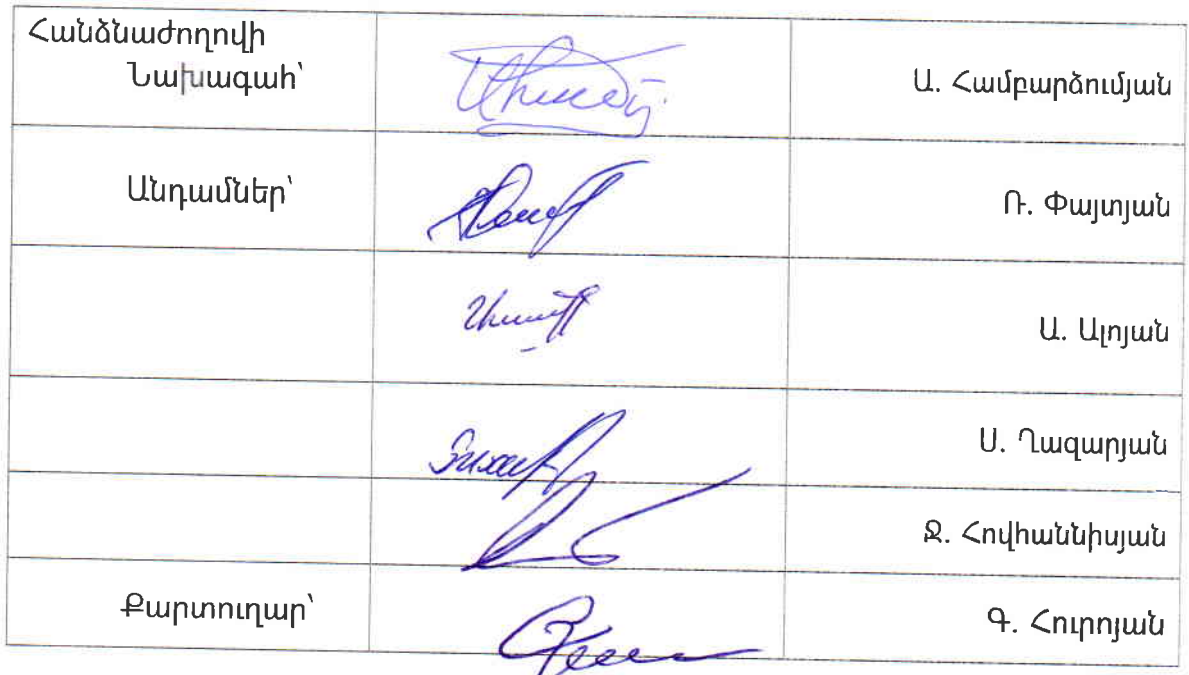 Հանձնաժողովի
Նախագահ՝
Ա. Համբարձումյան
Անդամներ՝
Ռ. Փայտյան
Ա. Ալոյան
Ս. Ղազարյան
Ջ. Հովհաննիսյան
Քարտուղար՝
Գ. Հուրոյան